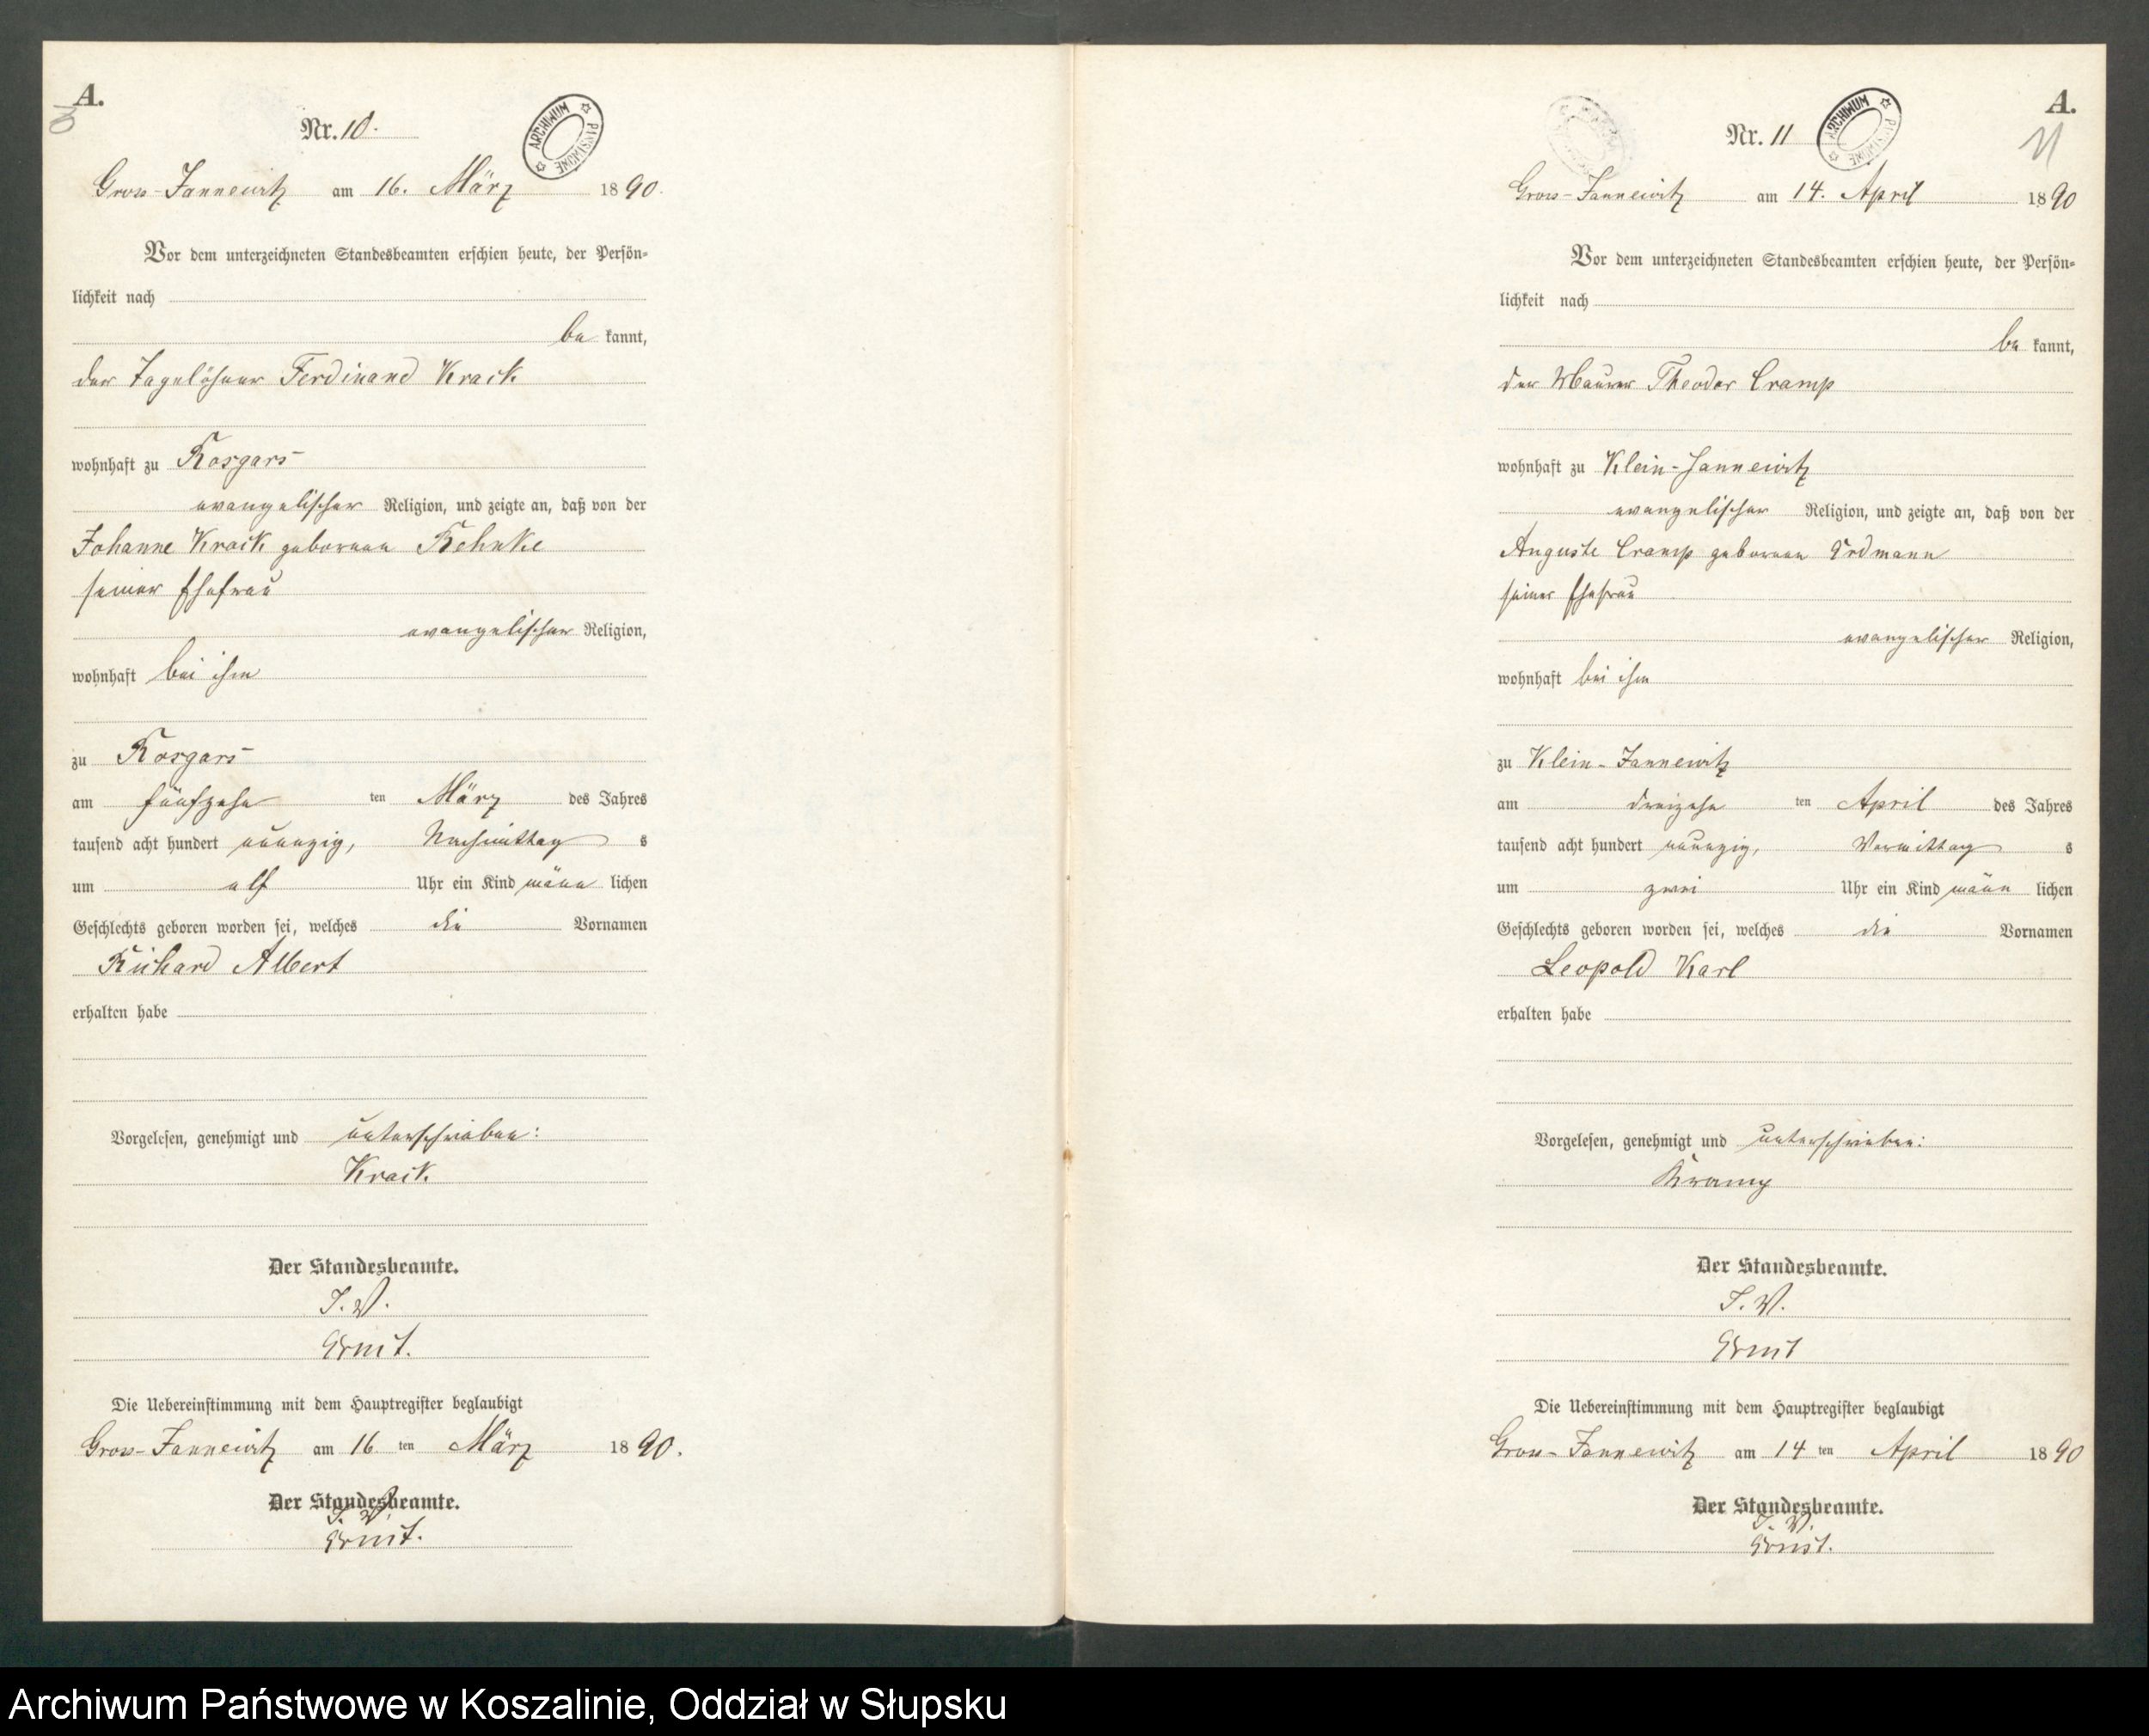 A.
Nr. 10.
ARCHIWUM PAŃSTWOWE
Gross-Jannewitz am 16. März 1890.
Vor dem unterzeichneten Standesbeamten erschien heute, der Persön-
lichkeit nach
be kannt,
der Tagelöhner Ferdinand Krack
wohnhaft zu Rosgars
evangelischer Religion, und zeigte an, daß von der
Johanne Krack geborenen
seiner Ehefrau
evangelischer Religion,
wohnhaft bei ihm
zu Rosgars
am fünfzehn ten März des Jahres
tausend acht hundert neunzig, Nachmittag s
um elf Uhr ein Kind männ lichen
Geschlechts geboren worden sei, welches die Vornamen
Richard Albert
erhalten habe
Vorgelesen, genehmigt und unterschrieben:
Krack.
Der Standesbeamte.
J. V.
Ernst.
Die Uebereinstimmung mit dem Hauptregister beglaubigt
Gross-Jannewitz am 16 ten März 1890.
Der Standesbeamte.
J. V.
Ernst.
A.
11
Nr. 11
ARCHIWUM PAŃSTWOWE
Gross-Jannewitz am 14. April 1890
Vor dem unterzeichneten Standesbeamten erschien heute, der Persön-
lichkeit nach
be kannt,
der Maurer Theodor Cramp
wohnhaft zu Klein-Jannewitz
evangelischer Religion, und zeigte an, daß von der
Auguste Cramp geborenen Erdmann
seiner Ehefrau
evangelischer Religion,
wohnhaft bei ihm
zu Klein-Jannewitz
am dreizehn ten April des Jahres
tausend acht hundert neunzig, Vormittag s
um zwei Uhr ein Kind männ lichen
Geschlechts geboren worden sei, welches die Vornamen
Leopold Karl
erhalten habe
Vorgelesen, genehmigt und unterschrieben:
Kramp
Der Standesbeamte.
J. V.
Ernst
Die Uebereinstimmung mit dem Hauptregister beglaubigt
Gross-Jannewitz am 14 ten April 1890
Der Standesbeamte.
J. V.
Ernst.
Archiwum Państwowe w Koszalinie, Oddział w Słupsku